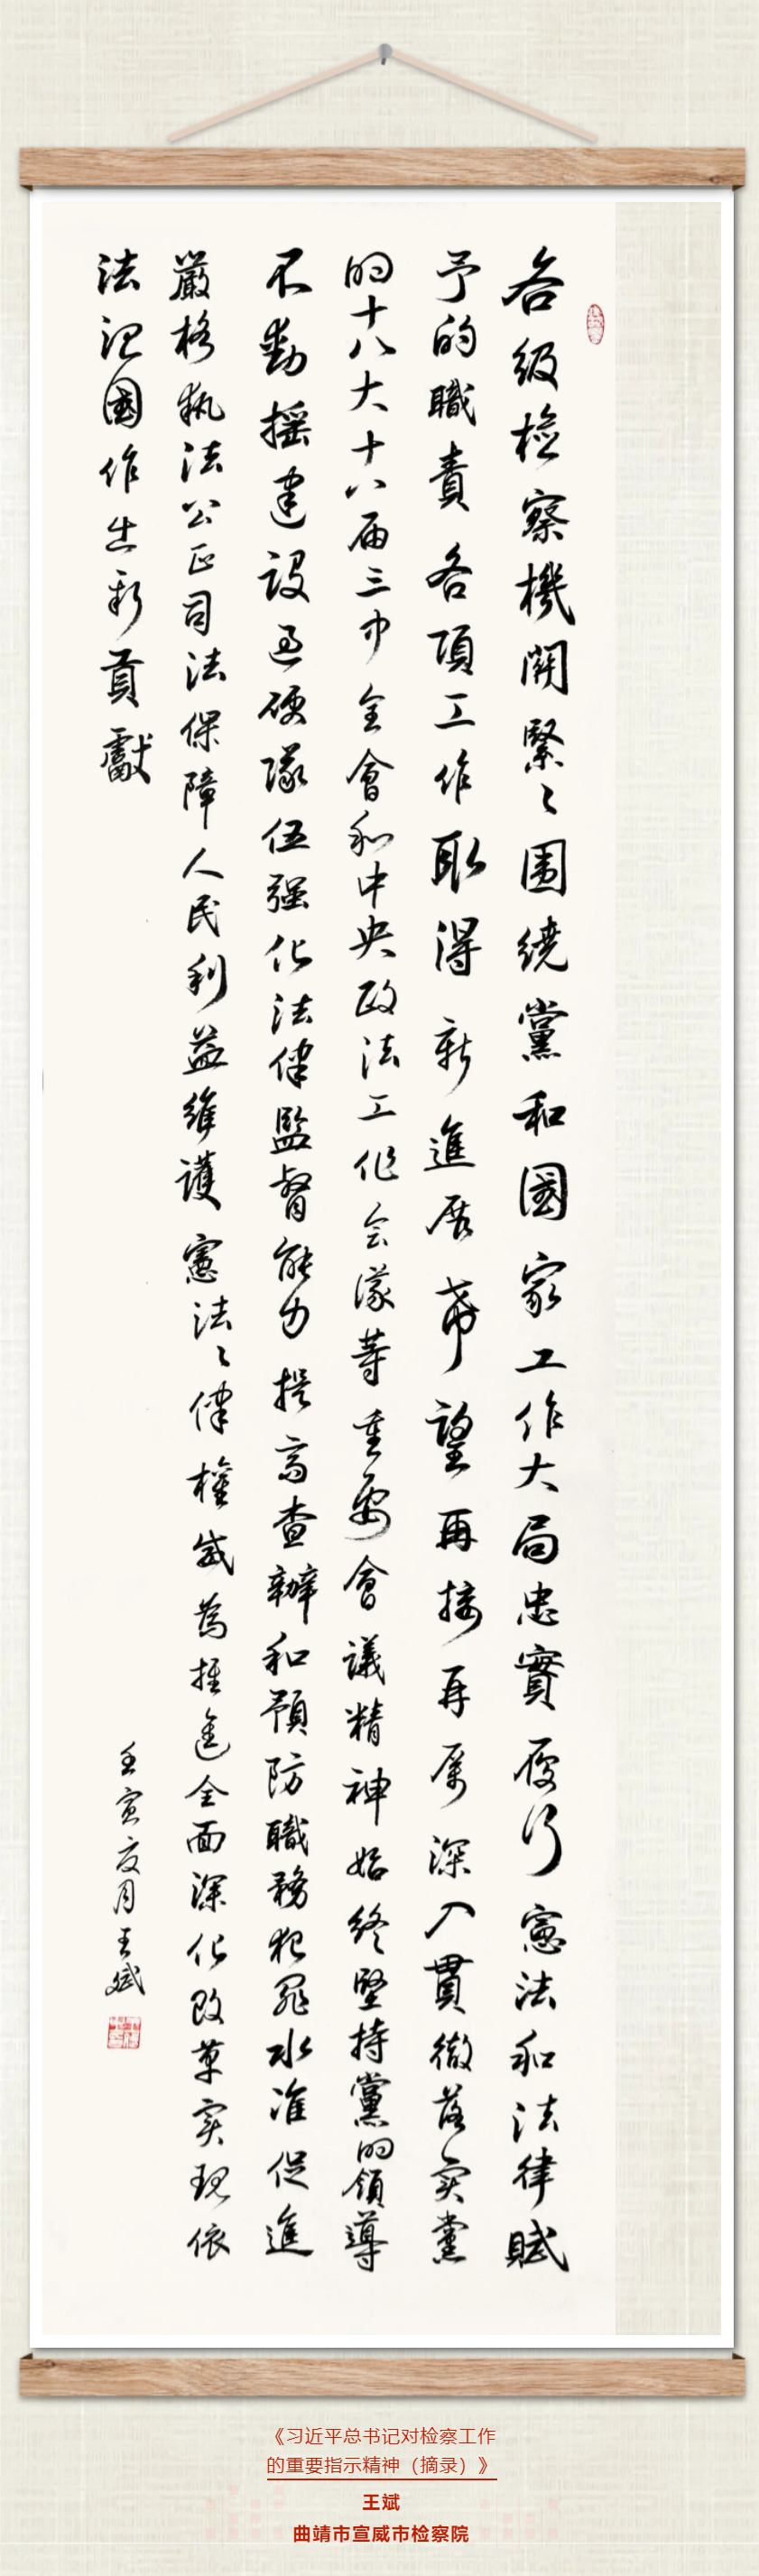 各级檢察機關緊々围繞黨和國家工作大局忠實履行憲法和法律赋
予的職責各項工作取得新進展希望再接再厉深入貫徹落实黨
的十八大十八届三中全會和中央政法工作会議等重要會議精神始终堅持黨的領導
不動摇建设过硬隊伍强化法律監督能力提高查辦和预防職務犯罪水准促進
嚴格執法公正司法保障人民利益維護憲法々律權威為推進全面深化改革实现依
法治國作出新貢獻
壬寅夏月王斌
《习近平总书记对检察工作
的重要指示精神（摘录）》
王斌
曲靖市宣威市检察院